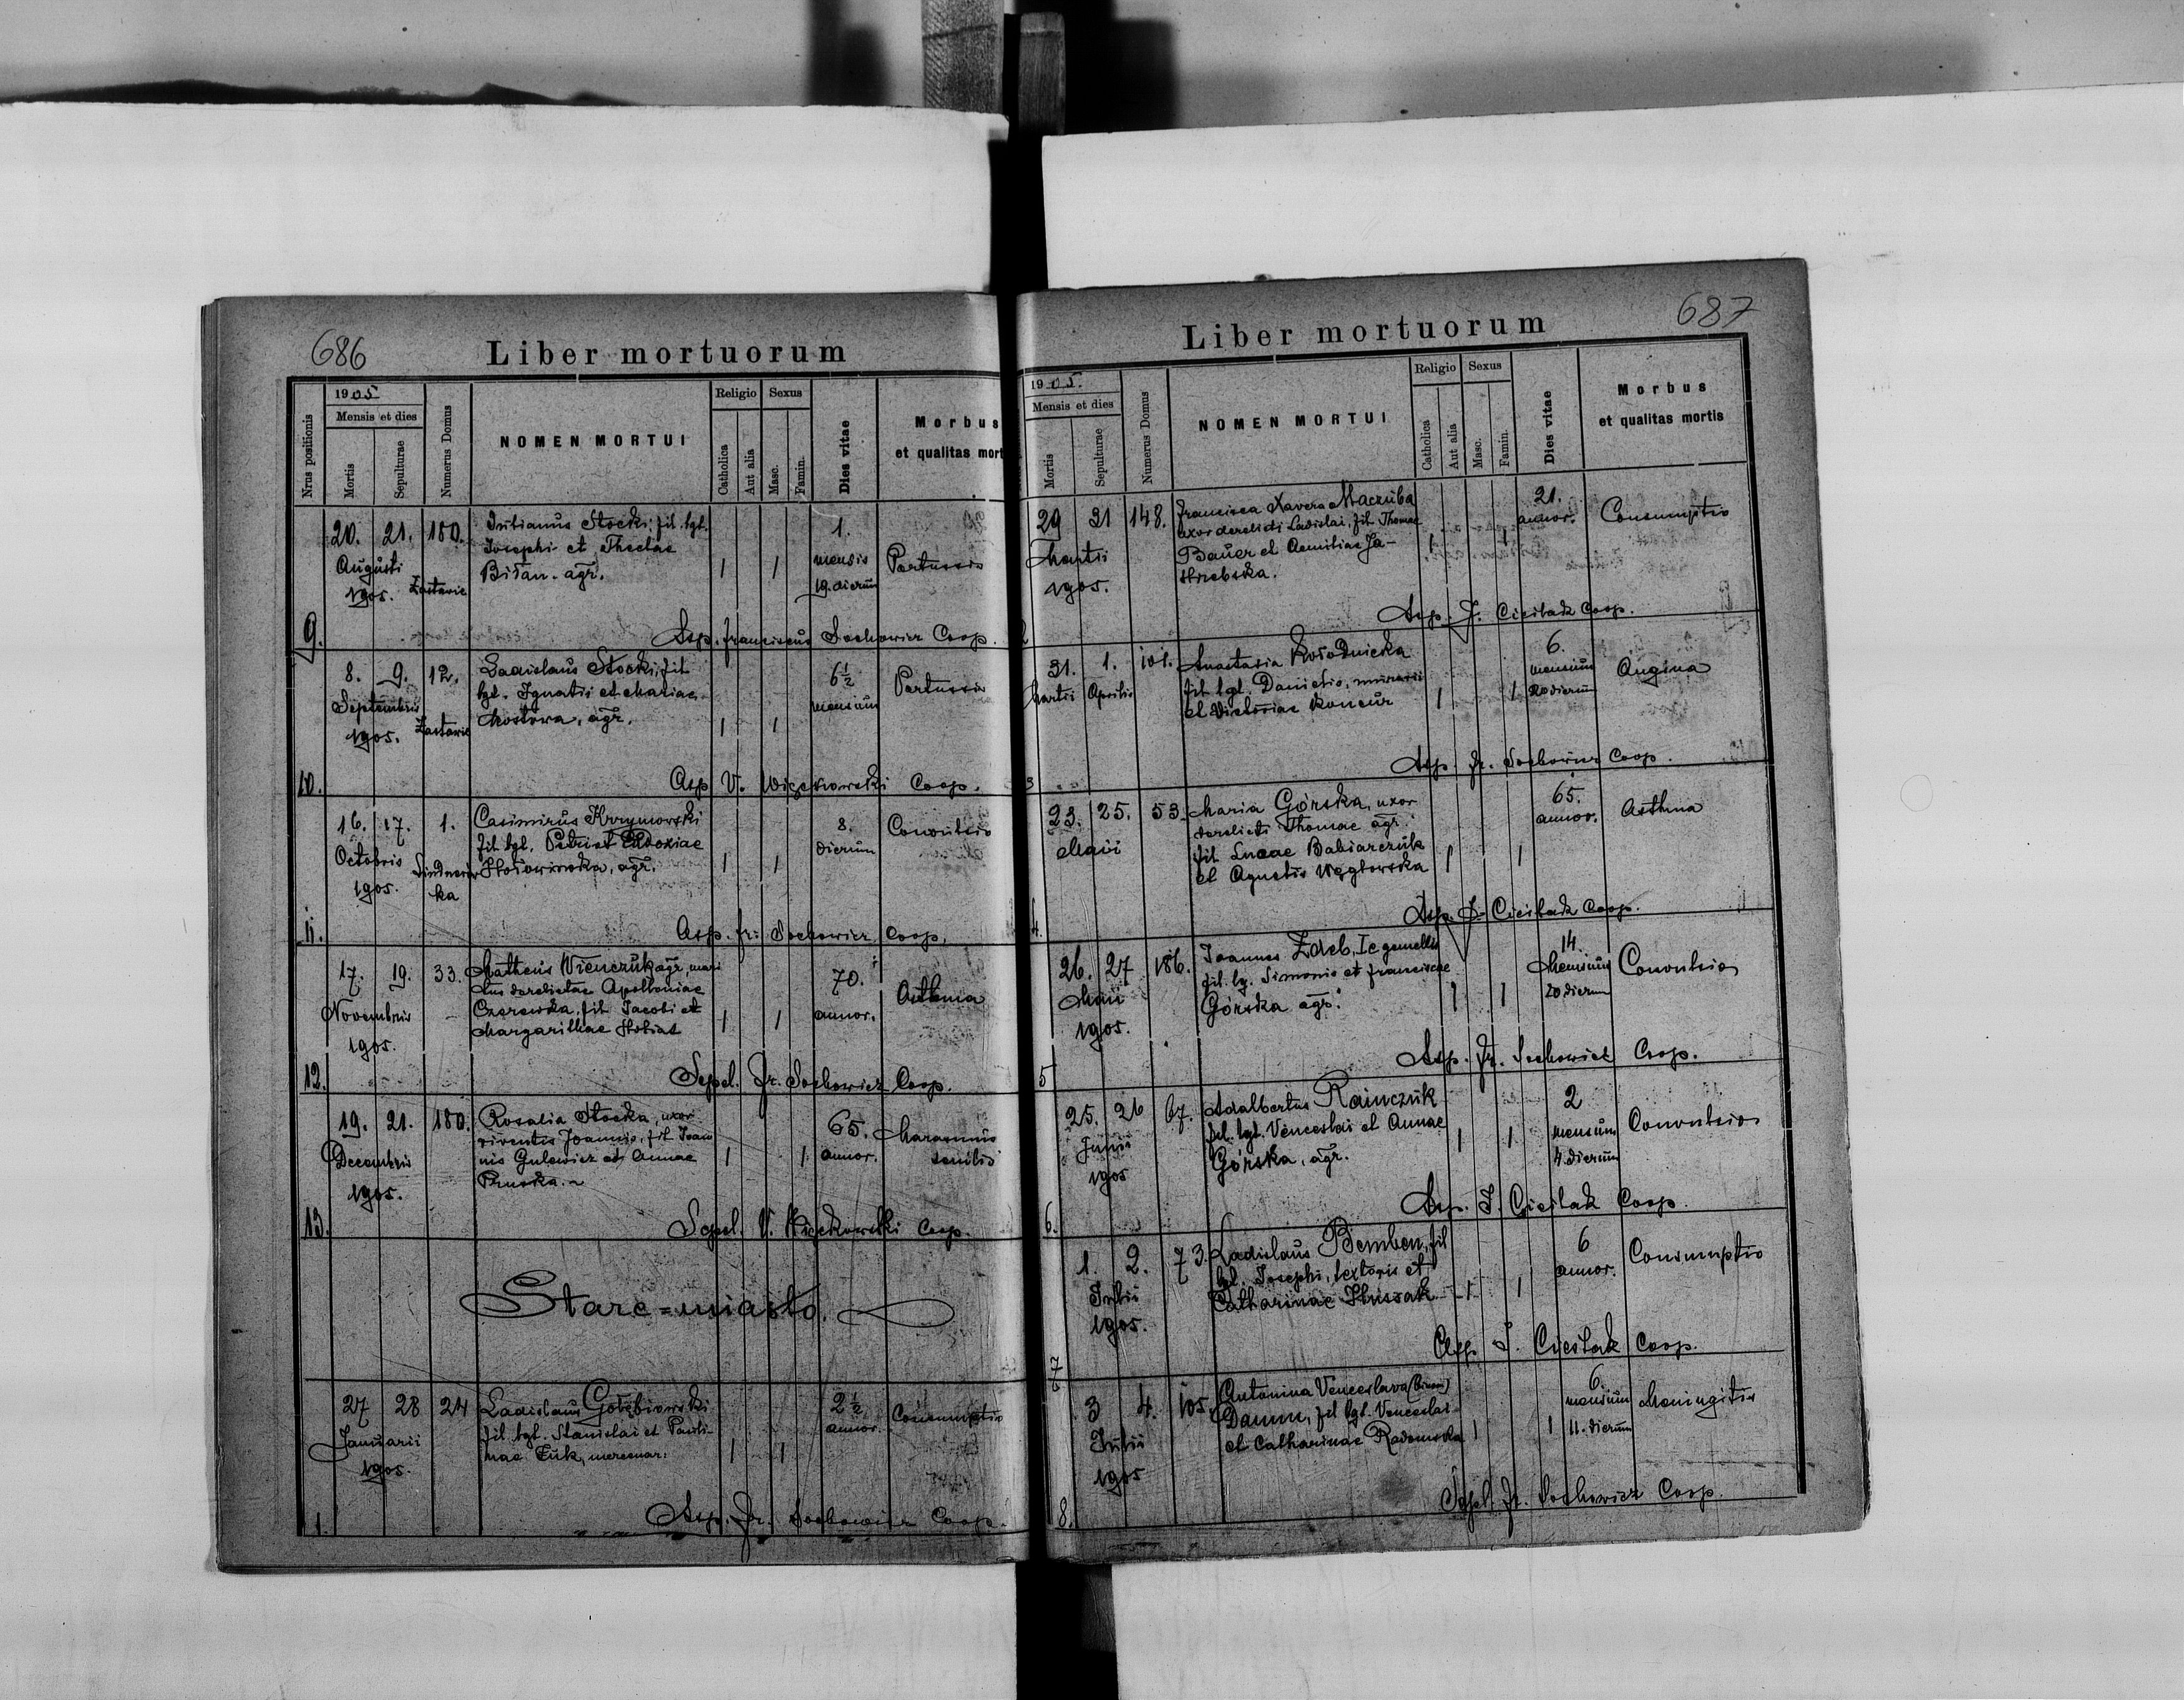 686
Liber mortuorum
Nrus positionis
1905
Mensis et dies
Mortis
Sepulturae
Numerus Domus
NOMEN MORTUI
Religio
Catholica
Aut alia
Sexus
Masc.
Famin.
Dies vitae
Morbus
et qualitas mort
20. 21. 180. Julianus Stocki, fil. lgt. 1.
Augusti Josephi et Theclae mensis Pertussis
1905. Zastavie Bilan. agr. 1 1 19. dierum
9. Asp. Franciscus Sochowicz Coop.
8. 9. 12. Ladislaus Stocki, fil 6½ Pertussis
Septembris lgt. Ignatii et Mariae mensium
1905. Zastavie agr. 1 1
10. Asp V. Więckowski Coop.
16. 17. 1. Casimirus Krzymowski 8. Convulsio
Octobris fil lgt. Petri et Eudoxiae dierum
1905. ka agr. 1 1
11. Asp. Fr. Sochowicz Coop.
17. 19. 33. Matheus Wienczuk agr, mari 70. Asthma
Novembris tus derelictae Apolloniae annor.
1905. Czerewska, fil Jacobi et 1 1
Margarithae
12. Sepel. Fr. Sochowicz Coop.
19. 21. 180. Rosalia Stocka, uxor 65. Marasmus
Decembris viventis Joannis, fil Joan annor. senilis
1905. nis Gulewicz et Annae 1 1
Pruska.
13. Sepel. V. Więckowski Coop.
Stare=miasto.
27 28 24 Ladislaus Gołębiowski 2½ Consumptio
Januarii fil. lgt. Stanislai et Pauli- annor.
1905. nae Łuk, mercenar. 1 1
1. Asp. Fr. Sochowicz Coop.
687
Liber mortuorum
1905.
Mensis et dies
Mortis
Sepulturae
Numerus Domus
NOMEN MORTUI
Religio
Catholica
Aut alia
Sexus
Masc.
Famin.
Dies vitae
Morbus
et qualitas mortis
29 31 148. Francisca Xavera Maczuba 21. Consumptio
Martii uxor derelicti Ladislai, fil Thomae annor.
1905. Bauer et Aemiliae Ja- 1 1
strzebska.
2 Asp. J. Cieślak Coop.
31. 1. 101. Anastasia Kołodnicka 6. Angina
Martii Aprilis fil lgt. Danielis, murarii mensium
et Victoriae Koncur 1 1 20 dierum
3 Asp. Fr. Sochowicz Coop.
23. 25. 53. Maria Górska, uxor 65. Asthma
Maii derelicti Thomae agr. annor.
fil Lucae Babiarczuk 1 1
et Agnetis Węgłowska
4. Asp. J. Cieślak Coop.
26. 27 186. Joannes Zdeb, 14. Convulsio
Maii fil. lg. Simonis et Franciscae mensium
1905. Górska agr. 1 1 20 dierum
5 Asp. Fr. Sochowicz Coop.
25. 26 67. Adalbertus Rainczuk 2 Convulsio
Junii fil. lgt. Venceslai et Annae mensium
1905 Górska, agr. 1 1 4 dierum
6. Asp. J. Cieślak Coop.
1. 2. 73. Ladislaus Bemben, fil 6 Consumptio
Julii lgt. Josephi, textoris et annor.
1905. Catharinae Hrissak 1 1
7 Asp. J. Cieślak Coop.
3 4. 105. Antonina Venceslava (binom) 6. Meningitis
Julii Damm, fil lgt. Venceslai mensium
1905 et Catharinae Radomska 1 1 11. dierum
8. Sepel. Fr. Sochowicz Coop.